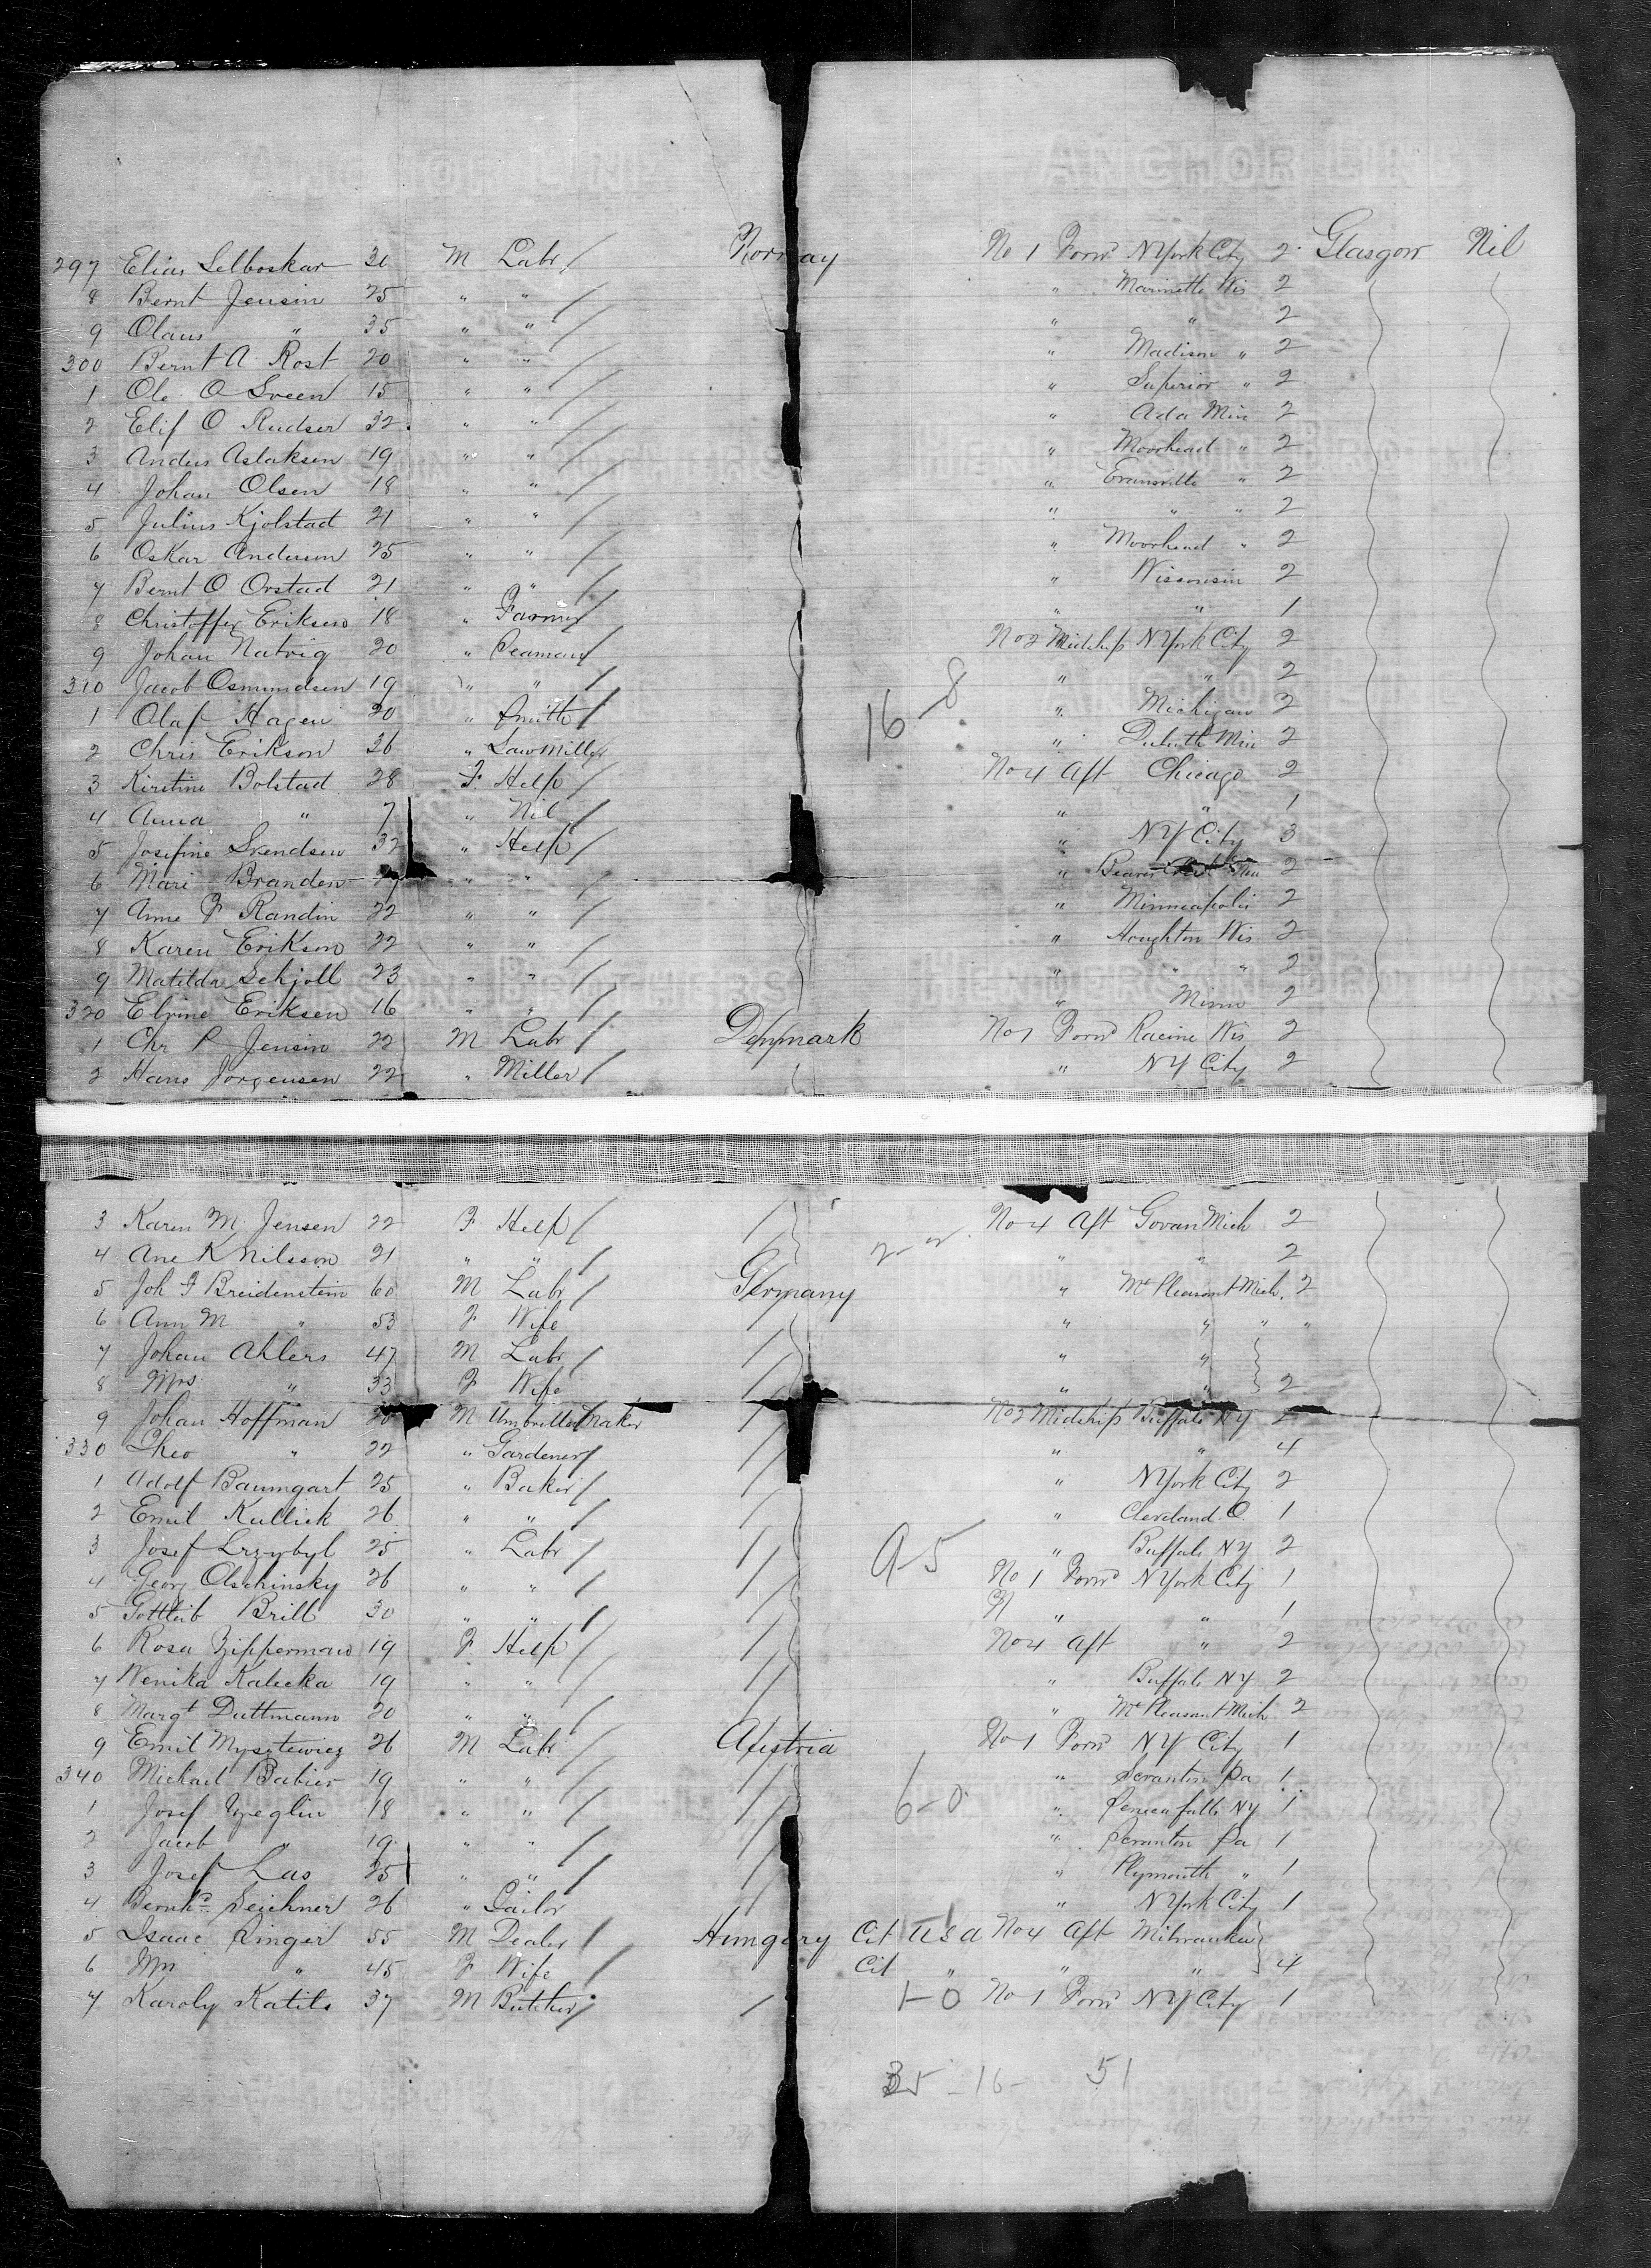 ANCHOR LINE ANCHOR LINE
297 Elias Selboskar 30 M Labr Norway No 1 Forwd N York City 2 Glasgow Nil
8 Bernt Jensin 25 " " " Marinette Wis 2
9 Olaus " 35 " " " " 2
300 Bernt A Rost 20 " " " Madison " 2
1 Ole O Sveen 15 " " " Superior " 2
2 Elif O Rudser 32 " " " Ada Min 2
3 Anders Aslaksen 19 " " " Moorhead " 2
4 Johan Olsen 18 " " " Evansville " 2
5 Julius Kjolstad 21 " " " " " 2
6 Oskar Anderson 25 " " " Moorhead " 2
7 Bernt O Orstad 21 " " " Wisconsin 2
8 Christoffer Eriksen 18 " Farmer " " 1
9 Johan Natvig 20 " Seaman No 2 Midship N York City 2
310 Jacob Osmundsen 19 " " " " 2
1 Olaf Hagen 20 " Smith 16-8 " Michigan 2
2 Chris Erikson 36 " Sawmiller " Duluth Min 2
3 Kirstine Bolstad 28 F. Help No 4 Aft Chicago 2
4 Anna " 7 " Nil " " 1
5 Josefine Svendsen 32 " Help " N Y City 3
6 Mari Branden " " " Beaver 2
7 Anne F Randin 22 " " " Minneapolis 2
8 Karen Erikson 22 " " " Houghton Wis 2
9 Matilda Schjoll 23 " " " " " 2
320 Elvine Eriksen 16 " " " Minn 2
1 Chr P Jensin 22 M Labr Denmark No 1 Forwd Racine Wis 2
2 Hans Jorgensen 22 " Miller " N Y City 2
3 Karen M Jensen 22 F Help No 4 Aft Govan Mich 2
4 Ane K Nilsson 21 " " " " 2
5 Joh F Breidenstein 60 M Labr Germany " Mt Pleasant Mich. 2
6 Ann M " 53 F Wife " " " "
7 Johan Ahlers 47 M Labr " "
8 Mrs " 33 F Wife " " 2
9 Johan Hoffman 20 M Umbrella Maker No 2 Midship Buffalo N Y 2
330 Theo " 22 " Gardener " " 4
1 Adolf Baumgart 25 " Baker " N York City 2
2 Emil Kullick 26 " " " Cleveland. O. 1
3 Josef 25 " Labr 9-5 " Buffalo N Y 2
4 Georg Olschinsky 26 " " No 1 Forwd N York City 1
5 Gottleib Brill 30 " " " " 1
6 Rosa Zipperman 19 F Help No 4 Aft " 2
7 Wenika Kalecka 19 " " " Buffalo N Y 2
8 Margt Duttmann 20 " " " Mt Pleasant Mich 2
9 Emil Mysztewicz 26 M Labr Austria No 1 Forwd N Y City 1
340 Michael Babier 19 " " " Scranton Pa 1
1 Josef 18 " " 6-0 " Seneca falls N Y 1
2 Jacob " 19 " " " Scranton Pa 1
3 Josef Las 25 " " " Plymouth " 1
4 Bernhd Seichner 26 " Tailor " N York City 1
5 Isaac Singer 55 M Dealer Hungary Cit U S A No 4 Aft Milwaukee
6 Mrs " 45 F Wife Cit " " " 4
7 Karoly Katits 37 M Butcher 1-0 No 1 Forwd N Y City 1
35 - 16 - 51